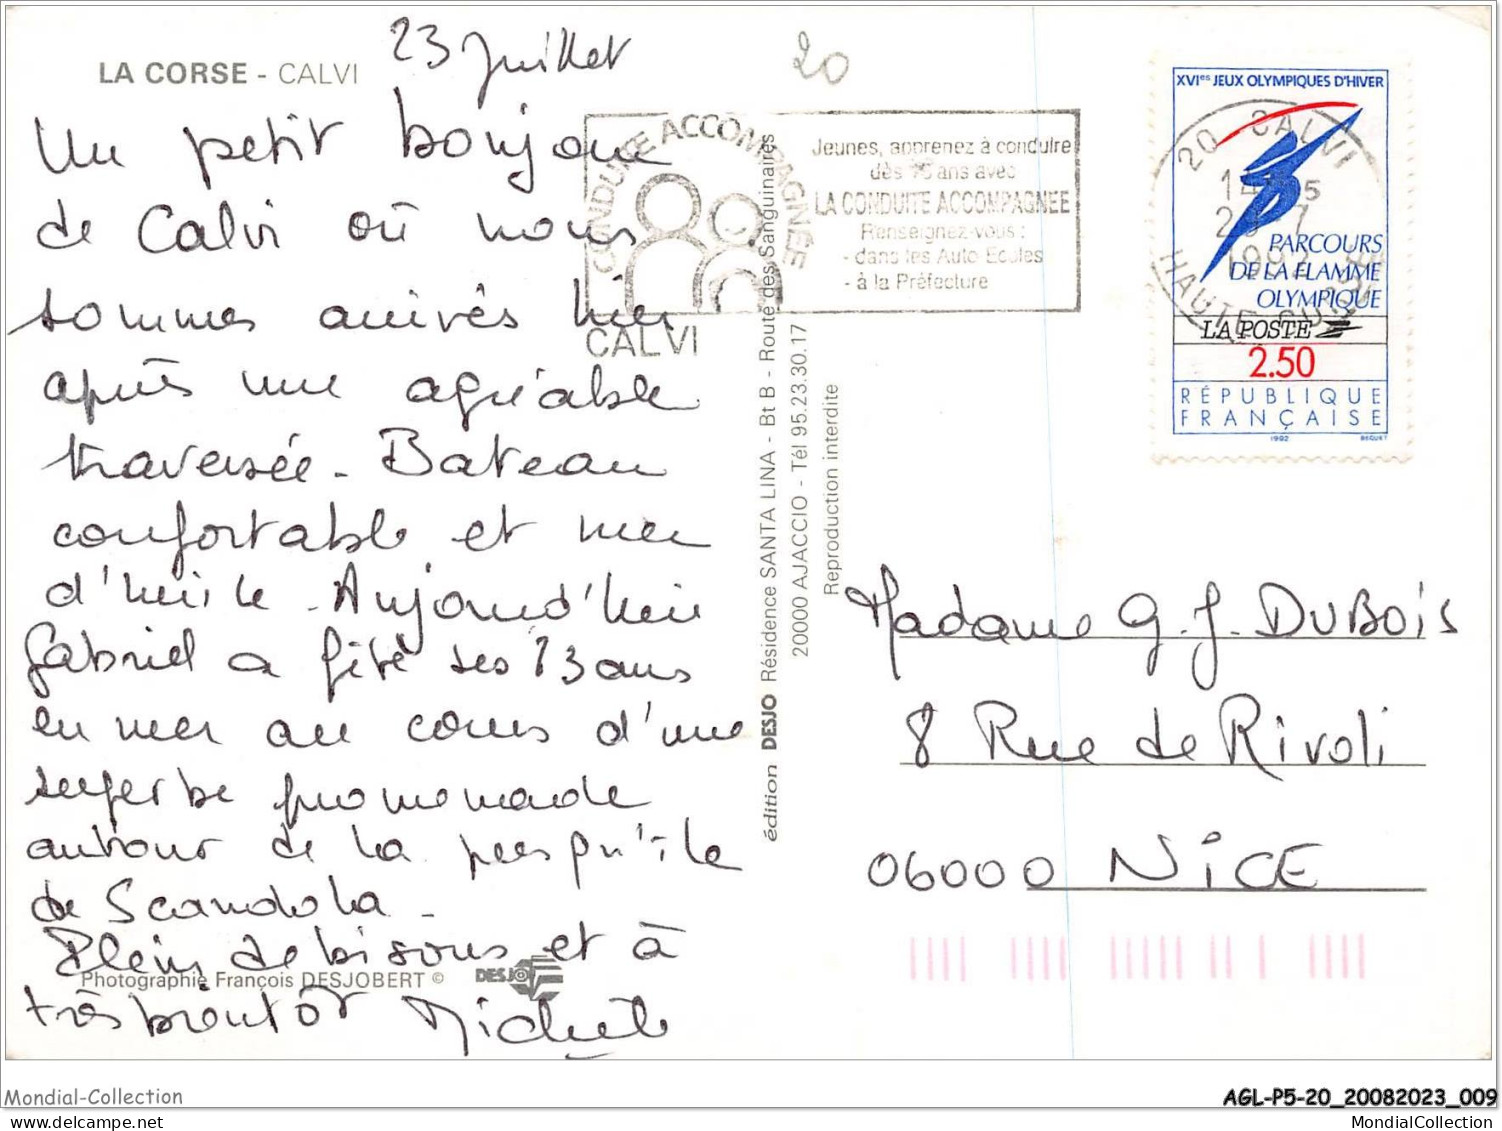 LA CORSE - CALVI
23 Juillet
Un petit bonjour
de Calvi où nous
sommes arrivés hier
après une agréable
traversée - Bateau
confortable et mer
d'huile. Aujourd'hui
Gabriel a fêté ses 13 ans
en mer au cours d'une
superbe promenade
autour de la presqu'île
de Scandola -
Plein de bisous et à
très bientôt Michèle
Photographie François DESJOBERT ©
DESJO
20
CONDUITE ACCOMPAGNÉE
CALVI
Jeunes, apprenez à conduire
dès 16 ans avec
LA CONDUITE ACCOMPAGNEE
Renseignez-vous :
- dans les Auto Ecoles
- à la Préfecture
édition DESJO Résidence SANTA LINA - Bt B - Route des Sanguinaires
20000 AJACCIO - Tél 95.23.30.17
Reproduction interdite
XVIes JEUX OLYMPIQUES D'HIVER
PARCOURS
DE LA FLAMME
OLYMPIQUE
LA POSTE
2.50
RÉPUBLIQUE
FRANÇAISE
1992 BEQUET
20 CALVI
1992
HAUTE CORSE
Madame G. J. DUBOIS
8 Rue de Rivoli
06000 NICE
Mondial-Collection
AGL-P5-20_20082023_009
www.mondialcollection.com
MondialCollection.com